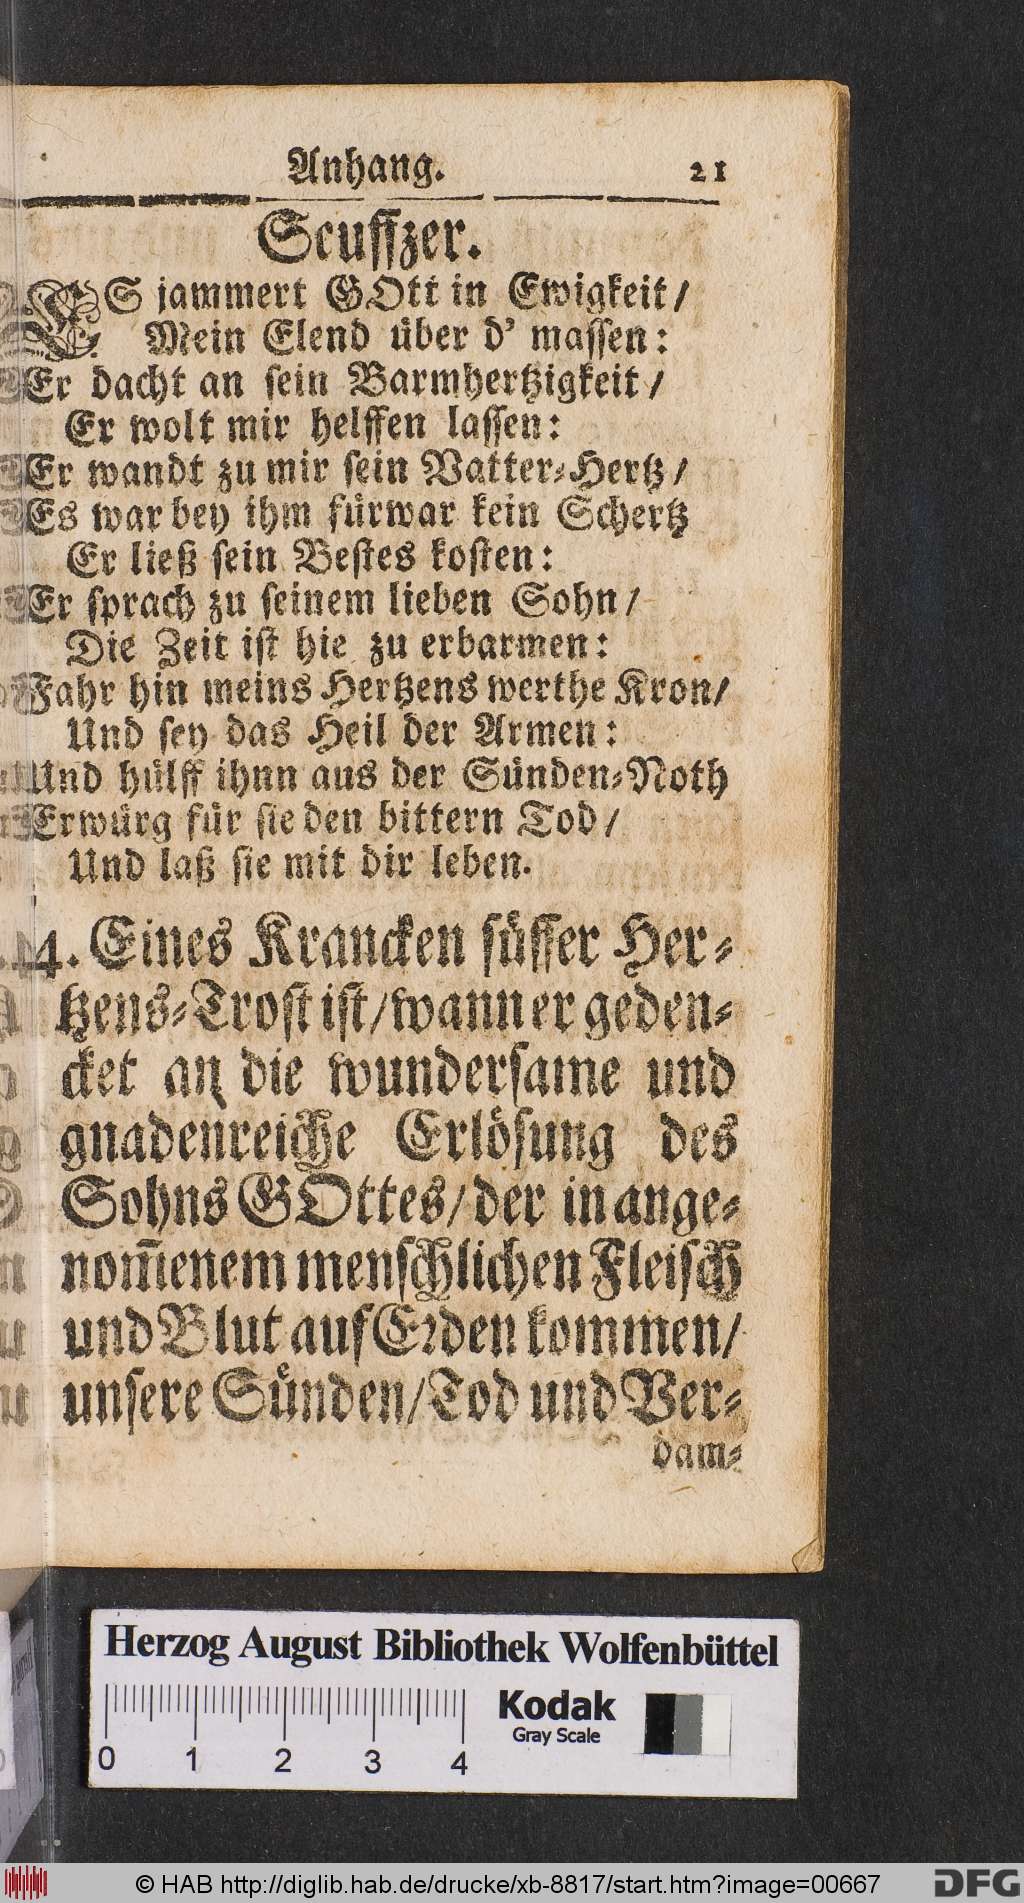 Anhang. 21
Seuffzer.
ES jammert GOtt in Ewigkeit /
Mein Elend über d' massen:
Er dacht an sein Barmhertzigkeit /
Er wolt mir helffen lassen:
Er wandt zu mir sein Vatter-Hertz /
Es war bey ihm fürwar kein Schertz
Er ließ sein Bestes kosten:
Er sprach zu seinem lieben Sohn /
Die Zeit ist hie zu erbarmen:
Fahr hin meins Hertzens werthe Kron /
Und sey das Heil der Armen:
Und hülff ihnn aus der Sünden-Noth
Erwürg für sie den bittern Tod /
Und laß sie mit dir leben.
14. Eines Krancken süsser Her-
tzens-Trost ist / wann er geden-
cket an die wundersame und
gnadenreiche Erlösung des
Sohns GOttes / der in ange-
nom̃enem menschlichen Fleisch
und Blut auf Erden kommen /
unsere Sünden / Tod und Ver-
dam-
Herzog August Bibliothek Wolfenbüttel
Kodak
Gray Scale
0 1 2 3 4
© HAB http://diglib.hab.de/drucke/xb-8817/start.htm?image=00667
DFG